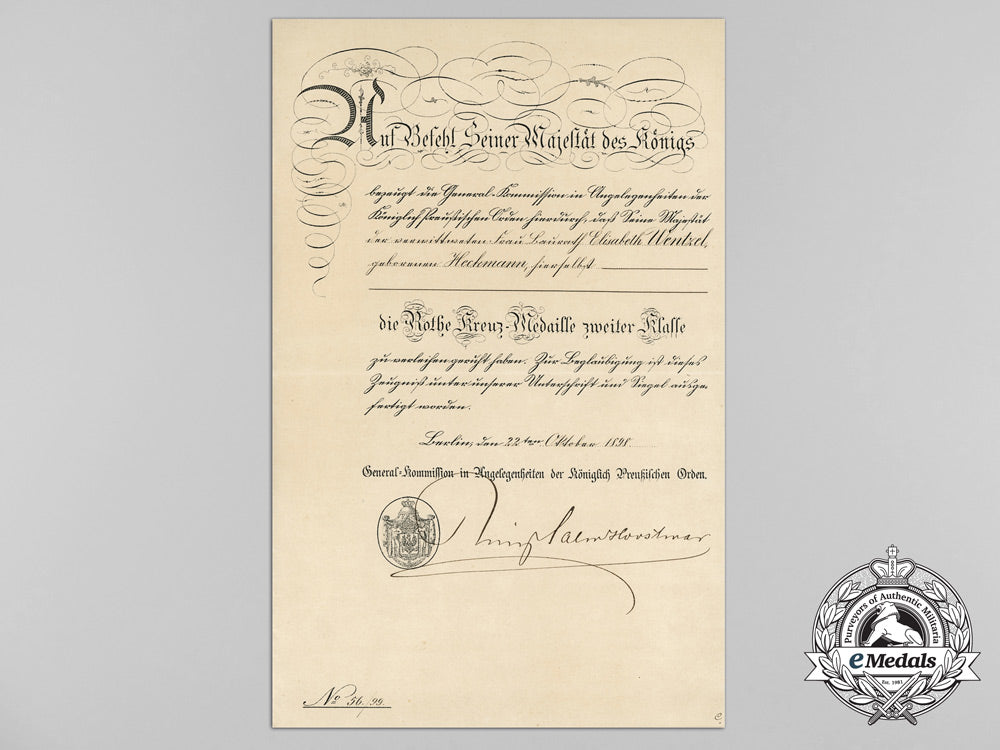 Auf Befehl Seiner Majestät des Königs
bezeugt die General-Kommission in Angelegenheiten der
Königlich Preußischen Orden hierdurch, daß Seine Majestät
der verwittweten Frau Baurath Elisabeth Wentzel,
geborenen Heckmann, hierselbst
die Rothe Kreuz-Medaille zweiter Klasse
zu verleihen geruht haben. Zur Beglaubigung ist dieses
Zeugniß unter unserer Unterschrift und Siegel ausge-
fertigt worden.
Berlin, den 22ten Oktober 1898.
General-Kommission in Angelegenheiten der Königlich Preußischen Orden.
Salm Horstmar
No 56./99.
C.
Purveyors of Authentic Militaria
eMedals
Est. 1981